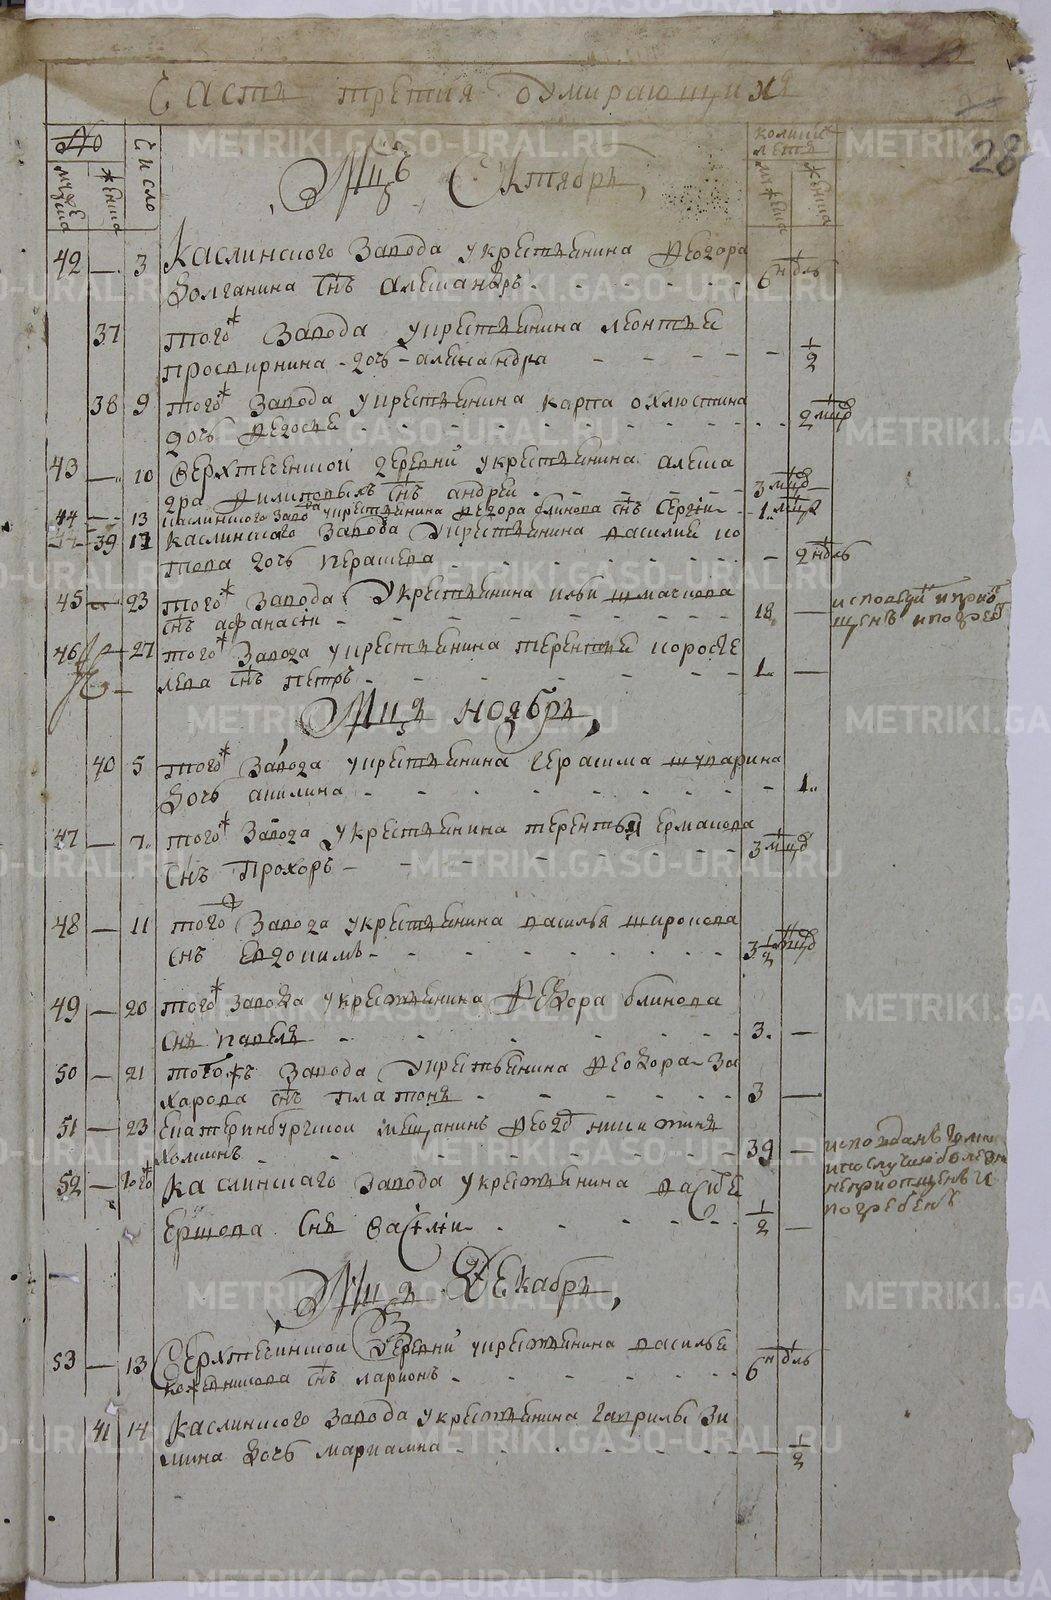 Часть третия о умирающихъ
28
№ число колики лета
мужеска женска мужеска женска
Мцъ Октябрь,
42 — 3 Каслинского Завода у крестьянина Федора
Долганина снъ Александръ - - - 6 ндль
37 того ж Завода у крестьянина Леонтья
Просвирнина дочь Александра - - - - 1/2
38 9 того ж Завода у крестьянина Карпа Охлюстина
дочь Федосья - - - 2 мцд
43 — 10 Верхтеченской деревни у крестьянина Алекса
ндра Филиповыхъ снъ Андрей - - - 3 мцд —
44 — 13 Каслинского Завода у крестьянина Федора Блинова снъ Сергий - - 1 мцд
39 17 Каслинского Завода у крестьянина Василья Ко
това дочь - - - 2 ндль
45 — 23 того ж Завода у крестьянина Ильи Шмакова
снъ Афанасий - - - 18 — исповедан и приоб
щенъ и погребенъ
46 27 того ж Завода у крестьянина Терентья Коросте
лева снъ Петръ - - - 1 —
Мца ноябрь,
40 5 того ж Завода у крестьянина Герасима
дочь Акилина - - - 1
47 — 7 того ж Завода у крестьянина Терентья Ермакова
снъ Прохоръ - - - 3 мцд
48 — 11 того ж Завода у крестьянина Василья Широкова
снъ Евдокимъ - - - 3 1/2 мцд
49 — 20 того ж Завода у крестьянина Федора Блинова
снъ Павелъ - - - 3 —
50 — 21 того жъ Завода у крестьянина Федора За
харова снъ Платонъ - - - 3 —
51 — 23 Екатеринбургской мещанинъ Федоръ Никитинъ
Холкинъ - - - 39 — исповеданъ
по случаю болезни
неприопщенъ и
погребенъ
52 — того ж Каслинского Завода у крестьянина Василья
Ершова снъ Василий - - - 1/2 —
Мца Декабрь,
53 — 13 Верхтечинской Деревни у крестьянина Василья
Кожевникова снъ Ларионъ - - - 6 ндль
41 14 Каслинского Завода у крестьянина Гаврилы Зи
мина дочь Мариамна - - - — 1/2
METRIKI.GASO-URAL.RU